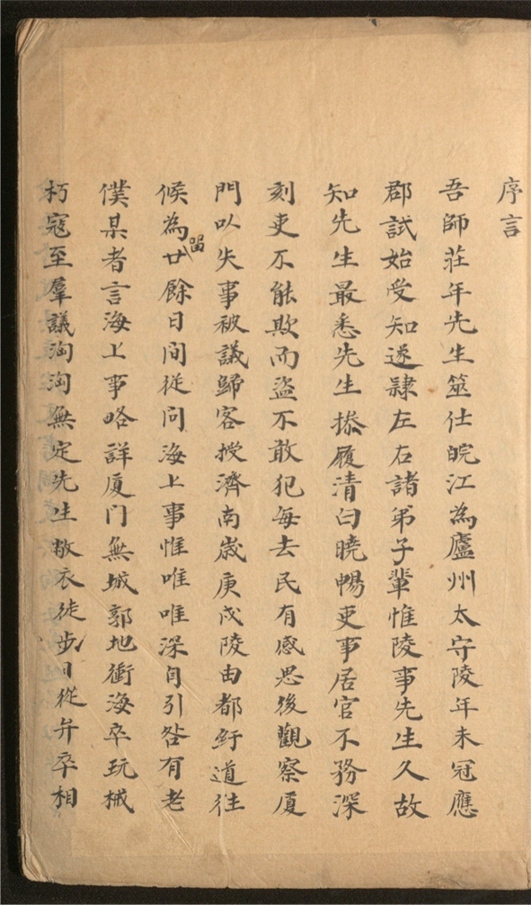 序言
吾師莊年先生筮仕皖江為廬州太守陵年未冠應
郡試始受知遂隷左右諸弟子輩惟陵事先生久故
知先生最悉先生操履清白曉暢吏事居官不務深
刻吏不能欺而盜不敢犯每去民有感思後觀察厦
門以失事被議歸客授濟南歲庚戌陵由都紆道往
候為留廿餘日間從問海上事惟唯唯深自引咎有老
僕某者言海上事略詳厦门無城郭地衝海卒玩械
朽寇至羣議洶洶無定先生敝衣徒步日從弁卒相